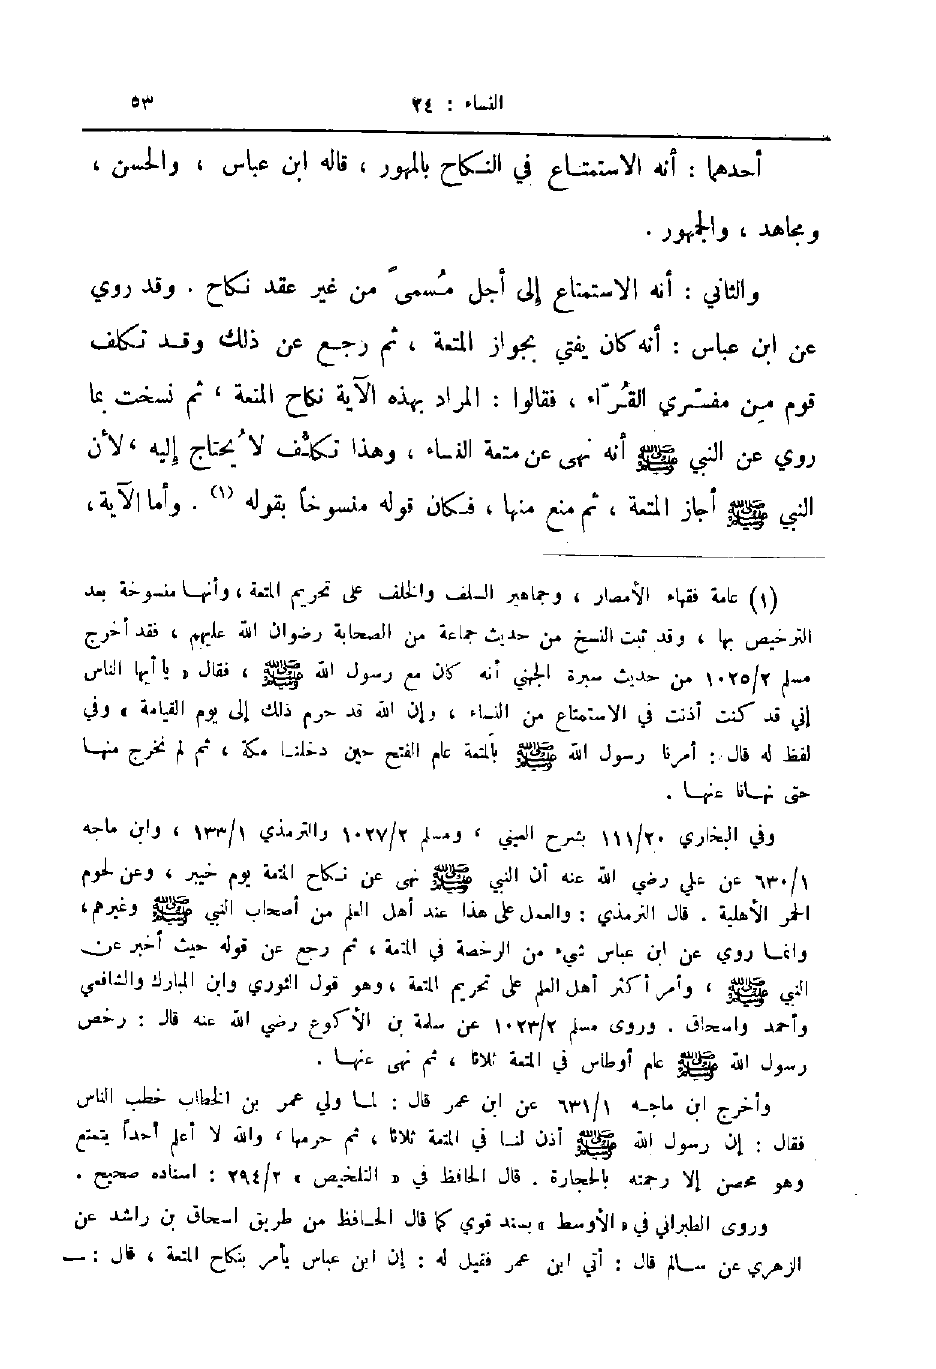 النساء : ٢٤
٥٣
أحدهما : أنه الاستمتاع في النكاح بالمهور ، قاله ابن عباس ، والحسن ،
ومجاهد ، والجمهور .
والثاني : أنه الاستمتاع إلى أجل مُسمىً من غير عقد نكاح . وقد روي
عن ابن عباس : أنه كان يفتي بجواز المتعة ، ثم رجع عن ذلك وقد تكلف
قوم من مفسّري القُرّاء ، فقالوا : المراد بهذه الآية نكاح المتعة ، ثم نسخت بما
روي عن النبي ﷺ أنه نهى عن متعة النساء ، وهذا تكلُّف لا يُحتاج إليه ، لأن
النبي ﷺ أجاز المتعة ، ثم منع منها ، فكان قوله منسوخاً بقوله (١) . وأما الآية،
(١) عامة فقهاء الأمصار ، وجماهير السلف والخلف على تحريم المتعة ، وأنها منسوخة بعد
الترخيص بها ، وقد ثبت النسخ من حديث جماعة من الصحابة رضوان الله عليهم ، فقد أخرج
مسلم ١٠٢٥/٢ من حديث سبرة الجهني أنه كان مع رسول الله ﷺ ، فقال « يا أيها الناس
إني قد كنت أذنت في الاستمتاع من النساء ، وإن الله قد حرم ذلك إلى يوم القيامة » وفي
لفظ له قال : أمرنا رسول الله ﷺ بالمتعة عام الفتح حين دخلنا مكة ، ثم لم نخرج منها
حتى نهانا عنها .
وفي البخاري ١١١/٢٠ بشرح العيني ، ومسلم ١٠٢٧/٢ والترمذي ١٣٣/١ ، وابن ماجه
٦٣٠/١ عن علي رضي الله عنه أن النبي ﷺ نهى عن نكاح المتعة يوم خيبر ، وعن لحوم
الحمر الأهلية . قال الترمذي : والعمل على هذا عند أهل العلم من أصحاب النبي ﷺ وغيرهم،
وانما روي عن ابن عباس شيء من الرخصة في المتعة ، ثم رجع عن قوله حيث أخبر عن
النبي ﷺ ، وأمر أكثر أهل العلم على تحريم المتعة ، وهو قول الثوري وابن المبارك والشافعي
وأحمد واسحاق . وروى مسلم ١٠٢٣/٢ عن سلمة بن الأكوع رضي الله عنه قال : رخص
رسول الله ﷺ عام أوطاس في المتعة ثلاثا ، ثم نهى عنها .
وأخرج ابن ماجه ٦٣١/١ عن ابن عمر قال : لما ولي عمر بن الخطاب خطب الناس
فقال : إن رسول الله ﷺ أذن لنا في المتعة ثلاثا ، ثم حرمها، والله لا أعلم أحداً يتمتع
وهو محصن إلا رجمته بالحجارة . قال الحافظ في « التلخيص » ٢٩٤/٢ : اسناده صحيح .
وروى الطبراني في « الأوسط » بسند قوي كما قال الحافظ من طريق اسحاق بن راشد عن
الزهري عن سالم قال : أتي ابن عمر فقيل له : إن ابن عباس يأمر بنكاح المتعة ، قال : —